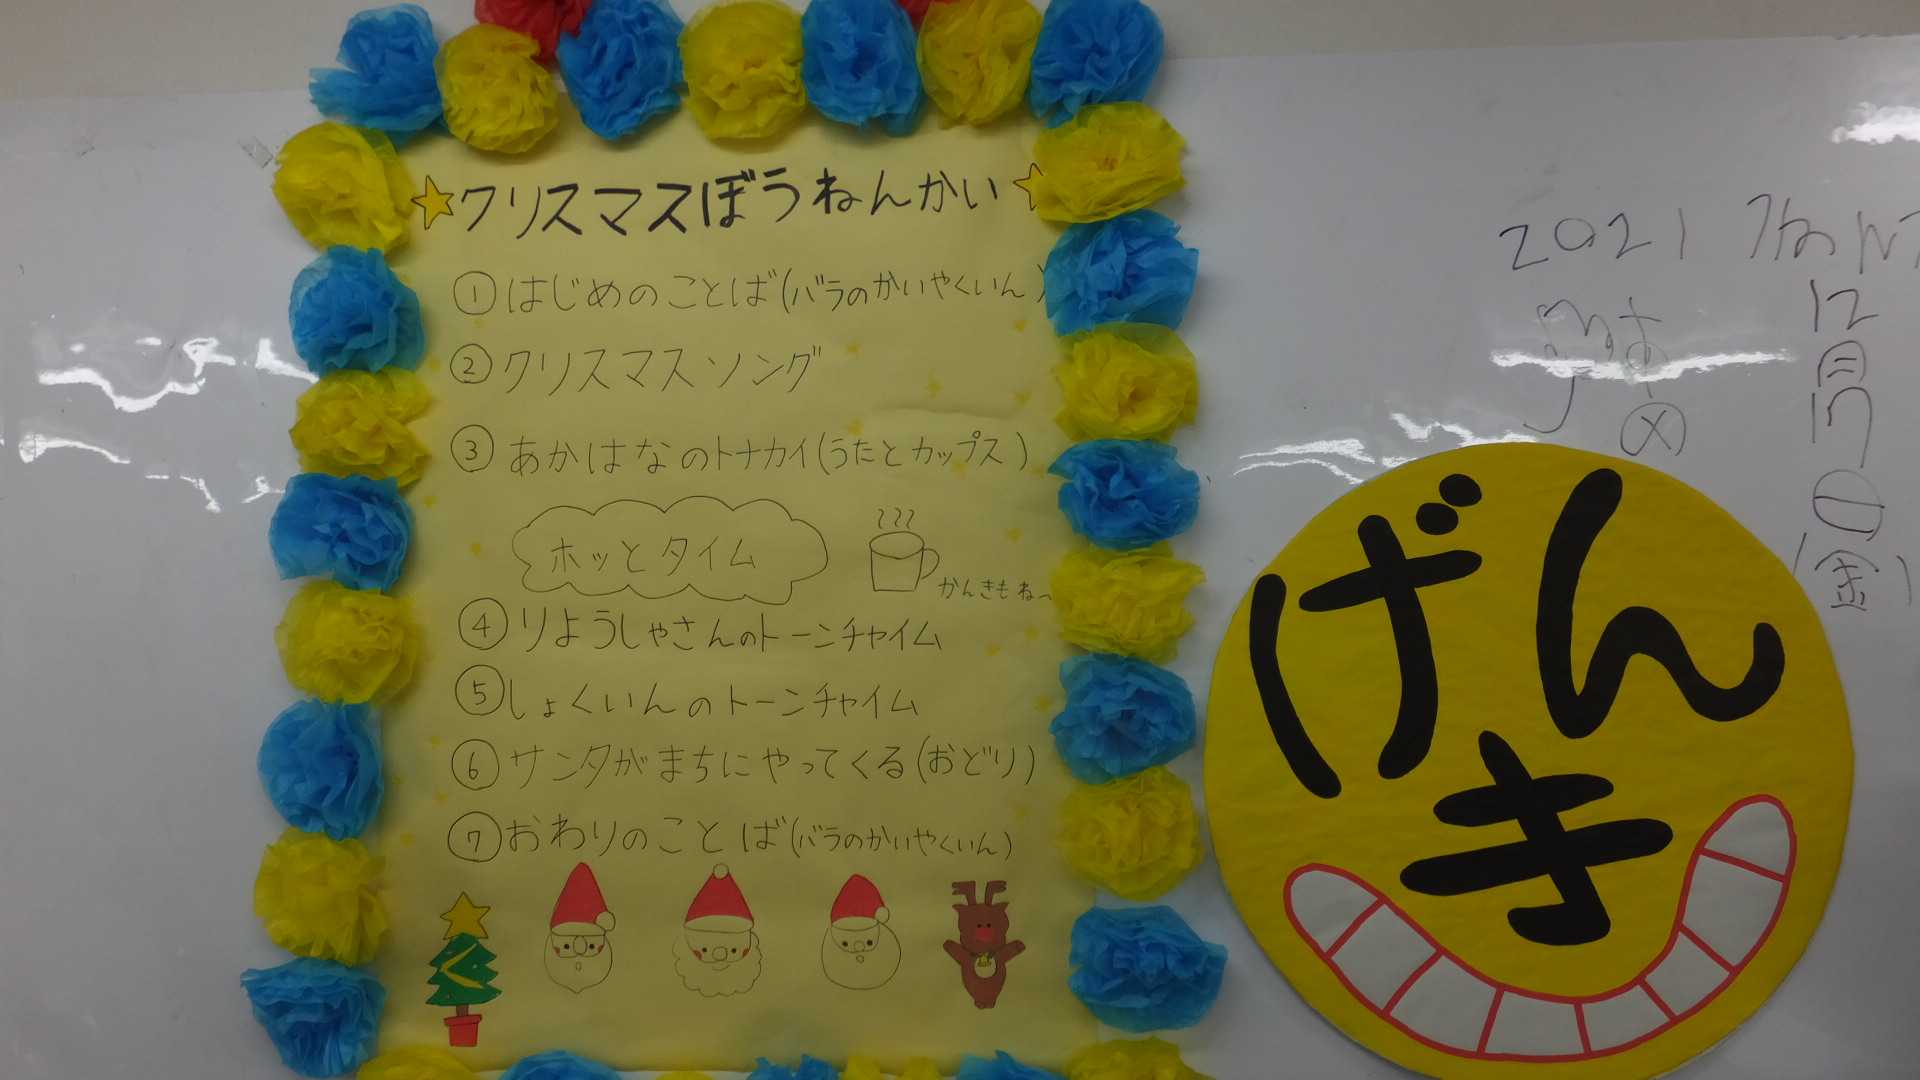 クリスマスぼうねんかい
①はじめのことば(バラのかいやくいん)
②クリスマスソング
③あかはなのトナカイ(うたとカップス)
ホッとタイム
かんきもね〜
④りようしゃさんのトーンチャイム
⑤しょくいんのトーンチャイム
⑥サンタがまちにやってくる(おどり)
⑦おわりのことば(バラのかいやくいん)
げん
き
2021
12
月
17
日
(金)